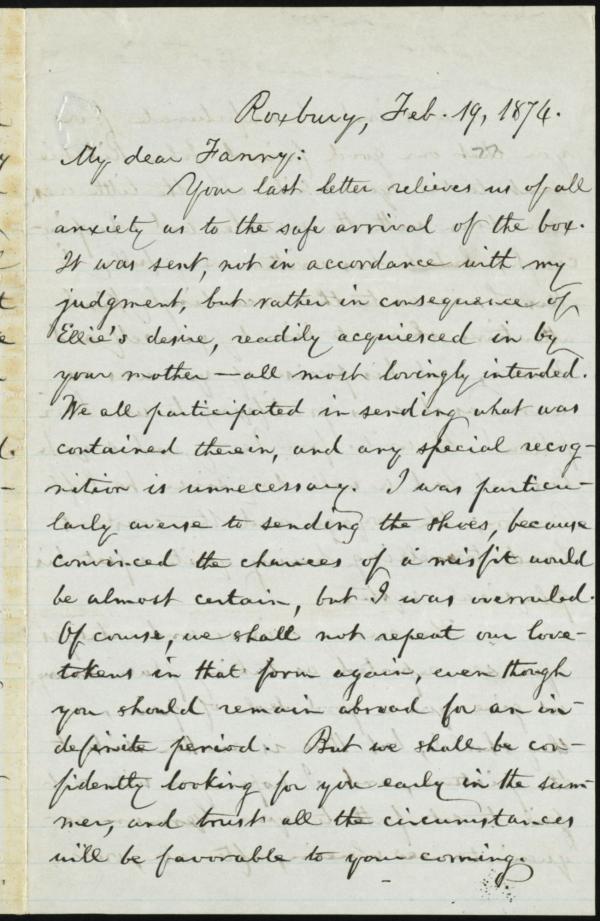 Roxbury, Feb. 19, 1874.
My dear Fanny:
Your last letter relieves us of all
anxiety as to the safe arrival of the box.
It was sent, not in accordance with my
judgment, but rather in consequence of
Ellie's desire, readily acquiesced in by
your mother—all most lovingly intended.
We all participated in sending what was
contained therein, and any special recog-
nition is unnecessary. I was particu-
larly averse to sending the shoes, because
convinced the chances of a misfit would
be almost certain, but I was overruled.
Of course, we shall not repeat our love-
tokens in that form again, even though
you should remain abroad for an in-
definite period. But we shall be con-
fidently looking for you early in the sum-
mer, and trust all the circumstances
will be favorable to your coming.